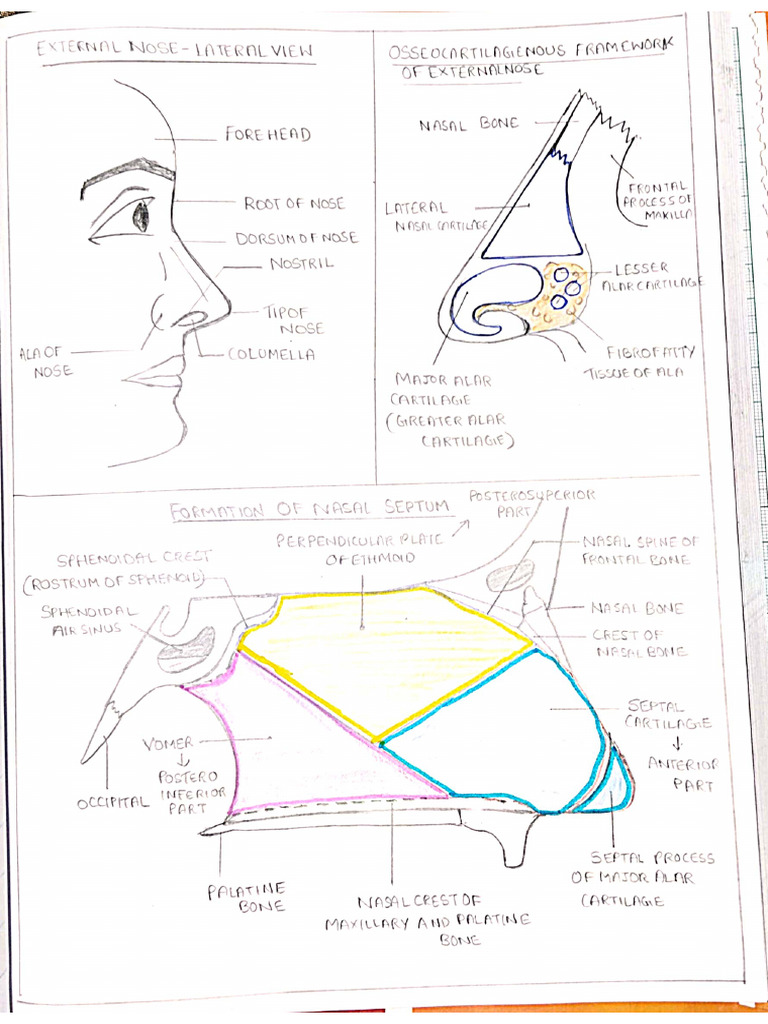 EXTERNAL NOSE - LATERAL VIEW
FOREHEAD
ROOT OF NOSE
DORSUM OF NOSE
NOSTRIL
TIP OF
NOSE
ALA OF
NOSE
COLUMELLA
OSSEOCARTILAGIENOUS FRAMEWORK
OF EXTERNAL NOSE
NASAL BONE
FRONTAL
PROCESS OF
MAXILLA
LATERAL
NASAL CARTILAGE
LESSER
ALAR CARTILAGE
FIBROFATTY
TISSUE OF ALA
MAJOR ALAR
CARTILAGE
(GREATER ALAR
CARTILAGE)
FORMATION OF NASAL SEPTUM
POSTEROSUPERIOR
PART
PERPENDICULAR PLATE
OF ETHMOID
NASAL SPINE OF
FRONTAL BONE
SPHENOIDAL CREST
(ROSTRUM OF SPHENOID)
SPHENOIDAL
AIR SINUS
NASAL BONE
CREST OF
NASAL BONE
SEPTAL
CARTILAGE
↓
ANTERIOR
PART
VOMER
↓
POSTERO
INFERIOR
PART
OCCIPITAL
SEPTAL PROCESS
OF MAJOR ALAR
CARTILAGE
PALATINE
BONE
NASAL CREST OF
MAXILLARY AND PALATINE
BONE